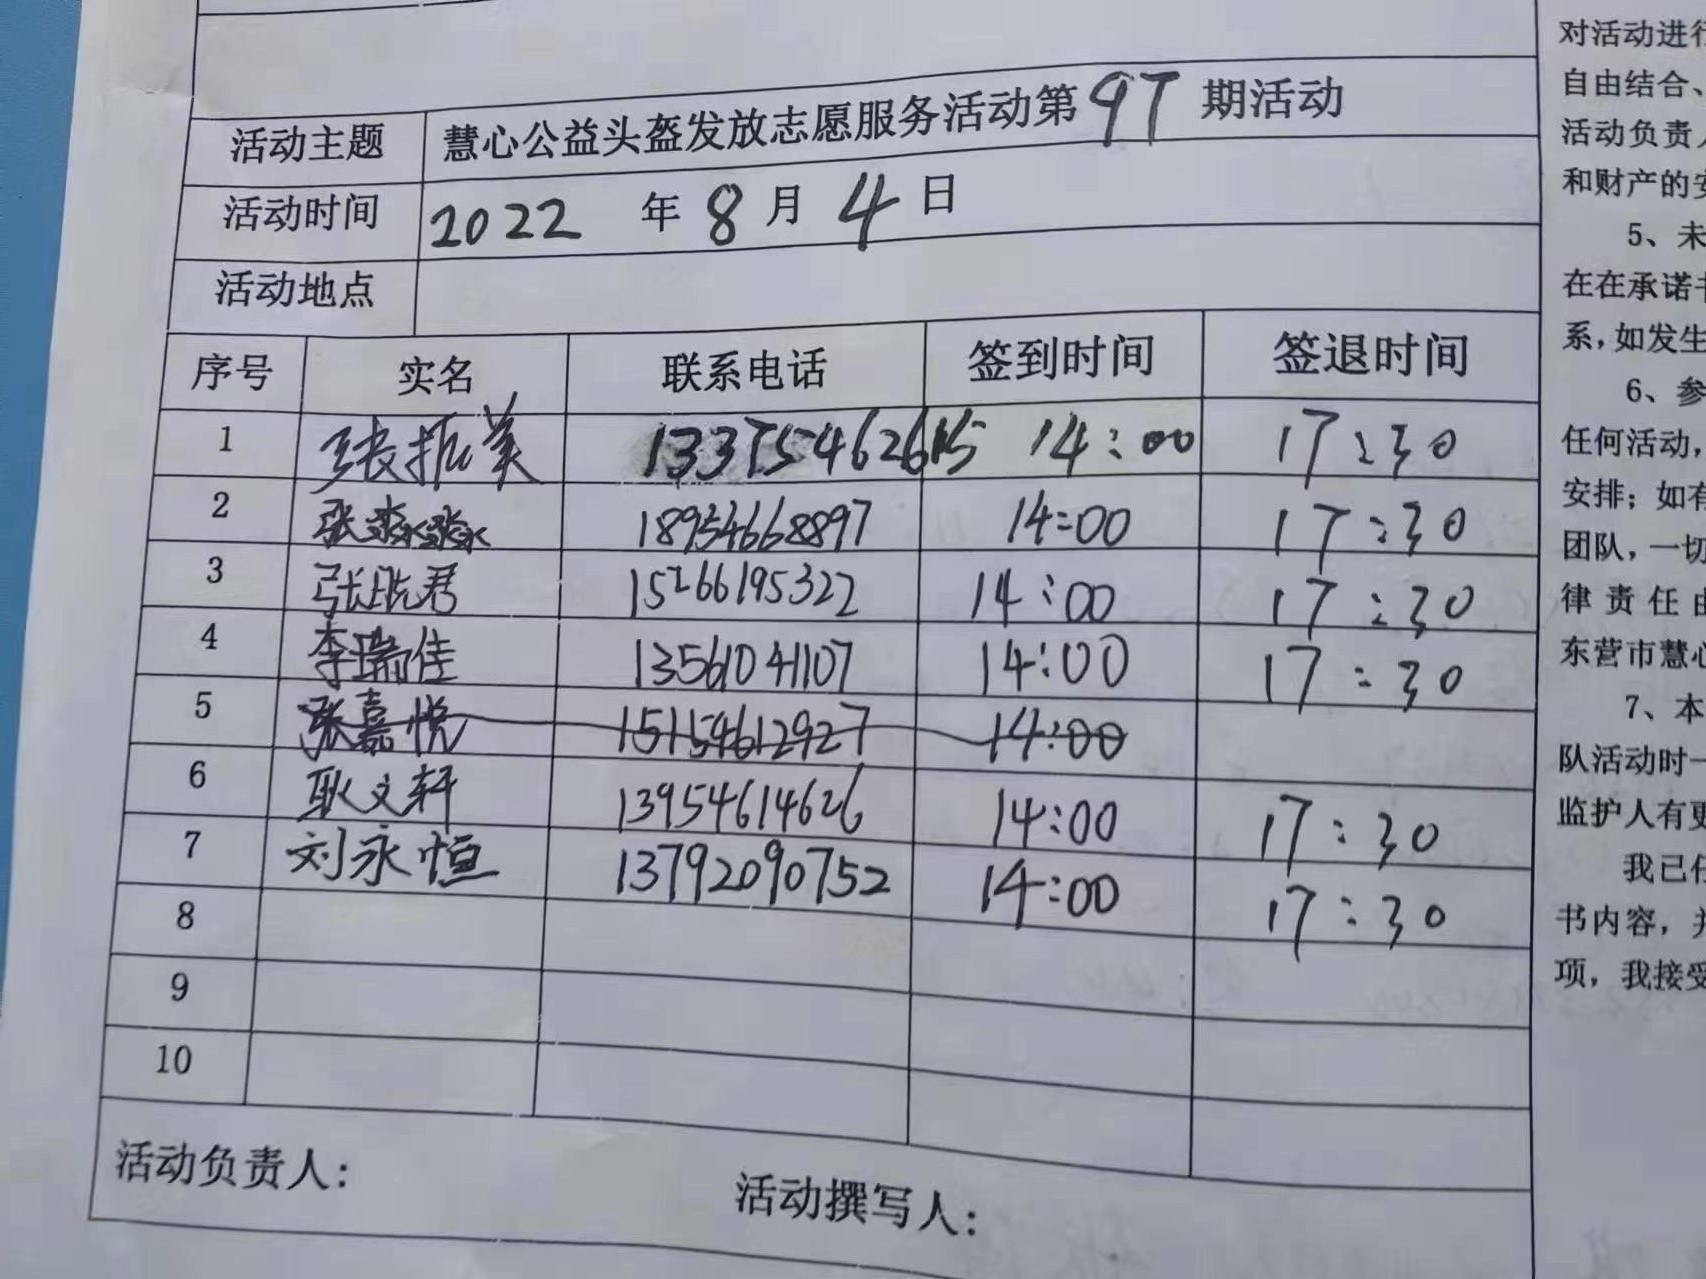 活动主题 慧心公益头盔发放志愿服务活动第97期活动
活动时间 2022 年 8 月 4 日
活动地点
序号 实名 联系电话 签到时间 签退时间
1 张振美 14:00 17:30
2 张淼淼 18954668897 14:00 17:30
3 15266195322 14:00 17:30
4 李瑞佳 13561041107 14:00 17:30
5 张嘉悦 15154612927 14:00
6 耿文轩 13954614626 14:00 17:30
7 刘永恒 13792090752 14:00 17:30
8
9
10
活动负责人:
活动撰写人:
对活动进行
自由结合、
活动负责
和财产的安
5、未
在在承诺书
系,如发生
6、参
任何活动,
安排;如有
团队,一切
律责任由
东营市慧心
7、本
队活动时一
监护人有更
我已仔
书内容,并
项,我接受